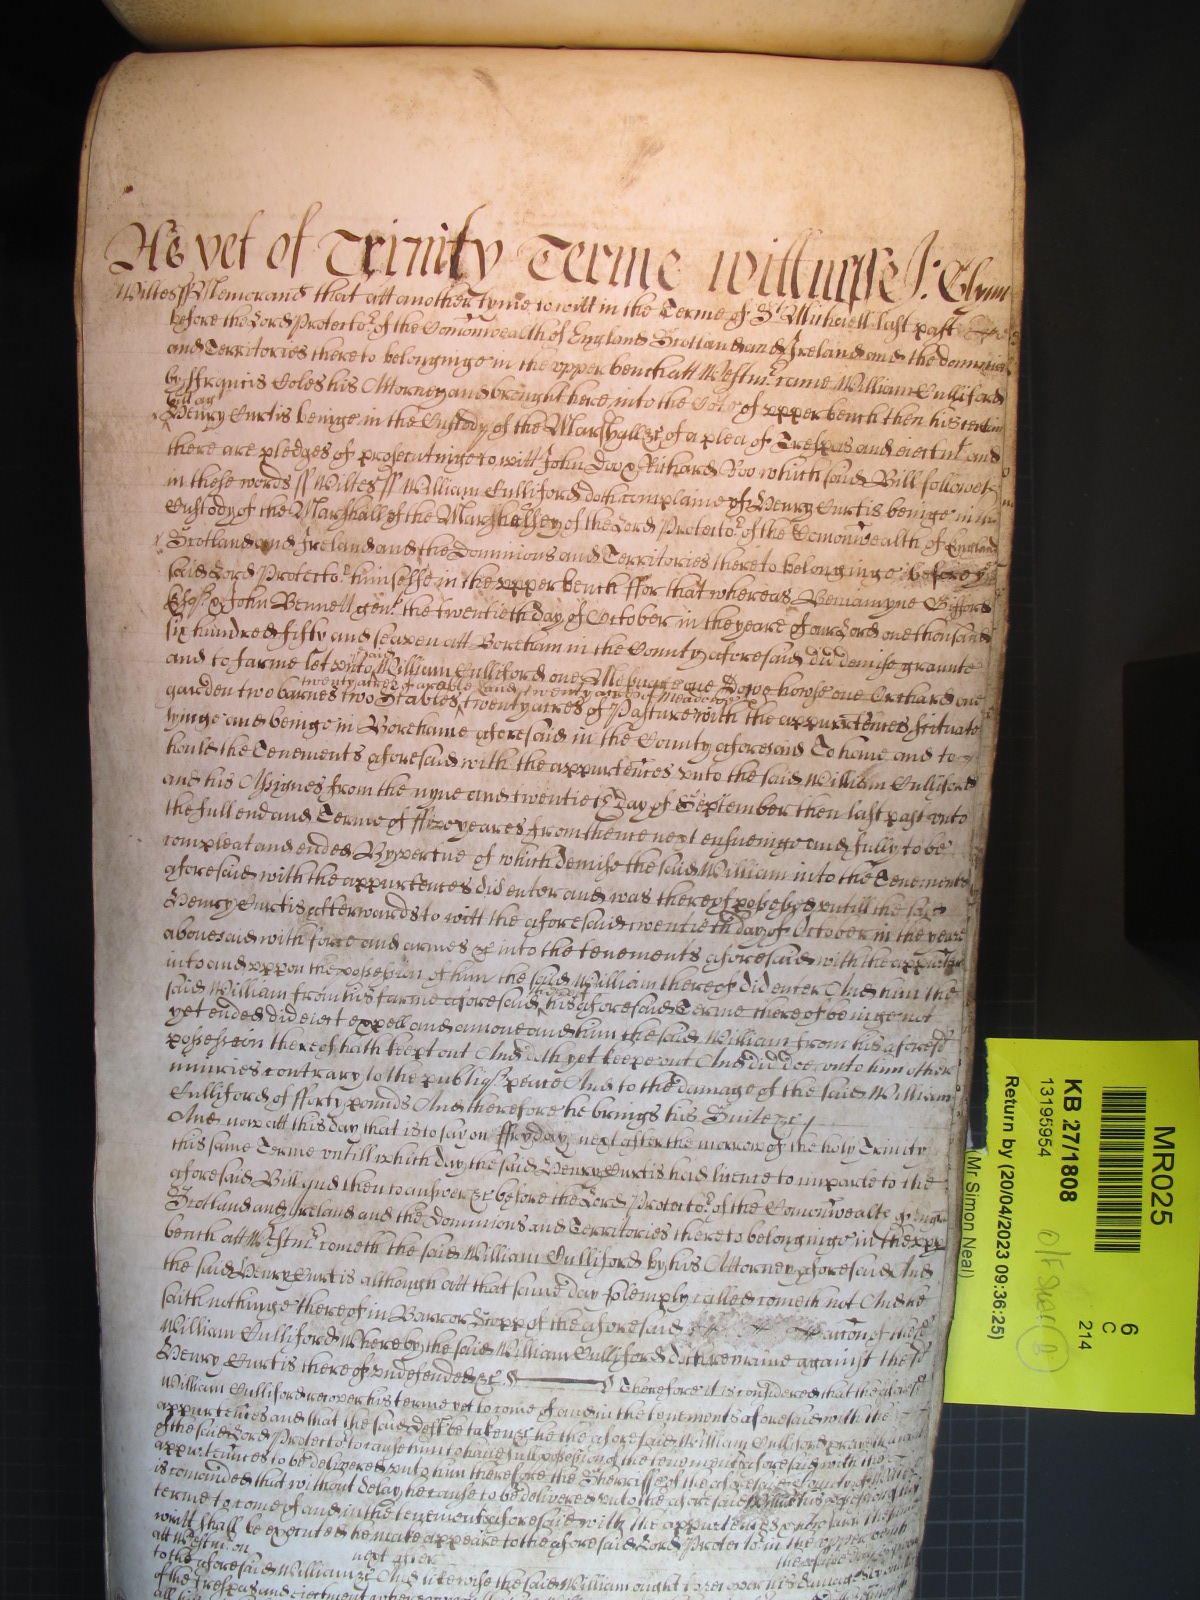 As yet of Trinity Terme Wittnesse J: Glynn
Wiltes ss Memorand that att another tyme to witt in the Terme of St Michaell last past
before the Lord Protector of the Comonwealth of England Scotland and Ireland and the dominions
and Territories thereto belonginge in the upper bench att Westmr came William Culliford
by Francis Coles his Attorney and brought here into the Court of upper bench then his certein
bill agt
Henry Curtis beinge in the Custody of the Marshall &c of a plea of Trespas and eiectmt and
there are pledges of prosecutinge to witt John Doo & Richard Roo which said Bill followeth
in these words ss Wiltes ss William Culliford doth complaine of Henry Curtis beinge in the
Custody of the Marshall of the Marshalsey of the Lord Protector of the Comonwealth of England
Scotland and Ireland and the Dominions and Territories thereto belonginge before ye
said Lord Protector himselfe in the upper bench ffor that whereas Beniamyne Gifford
Esqr & John Bennett gent the twentieth day of October in the yeare of our Lord one thousand
six hundred fifty and seaven att Boreham in the County aforesaid did demise graunte
and to farme let unto said William Culliford one Messuage one Dove howse one Orchard one
twenty acres of arable land twenty acres of meadowe
garden two barnes two Stables twenty acres of Pasture with the appurtences scituate
lyinge and beinge in Boreham aforesaid in the County aforesaid To haue and to
hould the Tenements aforesaid with the appurtences unto the said William Culliford
and his Assignes from the nyne and twentieth day of September then last past unto
the full end and Terme of ffive yeares from thence next ensueinge and fully to be
compleat and ended By vertue of which demise the said William into the Tenements
aforesaid with the appurtences did enter and was thereof possessed untill the said
Henry Curtis afterwards to witt the aforesaid twentieth day of October in the yeare
abouesaid with force and armes &c into the tenements aforesaid with the appurtences
into and uppon the possession of him the said William thereof did enter And him the
said William from his farme aforesaid his aforesaid Terme thereof beinge not
yet ended did eiect expell and amove and him the said William from his aforesd
possession thereof hath kept out And doth yet keepe out And did doe unto him other
iniuries contrary to the publiq peace And to the damage of the said William
Culliford of fforty pounds And therefore he brings his Suite &c
And now att this day that is to say on ffryday next after the morrow of the holy Trinity
this same Terme untill which day the said Henry Curtis had licence to imparle to the
aforesaid Bill and then to answer &c before the Lord Protector of the Comonwealth of England
Scotland and Ireland and the Dominions and Territories thereto belonginge in the upper
bench att Westmr cometh the said William Culliford by his Attorney aforesaid And
the said Henry Curtis although att that same day solemply called cometh not And he
saith nothinge thereof in Barr or Stopp of the aforesaid accon of the sd
William Culliford Whereby the said William Culliford doth remaine against the sd
Henry Curtis thereof undefended &c Therefore it is considered that the aforesd
William Culliford recover his terme yet to come of and in the tenements aforesaid with the
appurtences and that the said deft be taken &c he the aforesaid William Culliford prayeth
of the said Lord Protector to cause him to have full possession of the tenements aforesaid with the
appurtences to be delivered unto him therefore the Sherriffe of the aforesaid County of
is comanded that without delay he cause to be delivered unto the aforesaid possession of his
terme to come of and in the tenements aforesaid with the appurtences
writt shall be executed he make appeare to the aforesaid Lord Protector in the upper bench
att Westmr on next after
to the aforesaid William &c And likewise the said William ought to recover his damages
of the Trespas and eiectment
MR025
KB 27/1808
13195954
Return by (20/04/2023 09:36:25)
(Mr. Simon Neal)
6
C
214